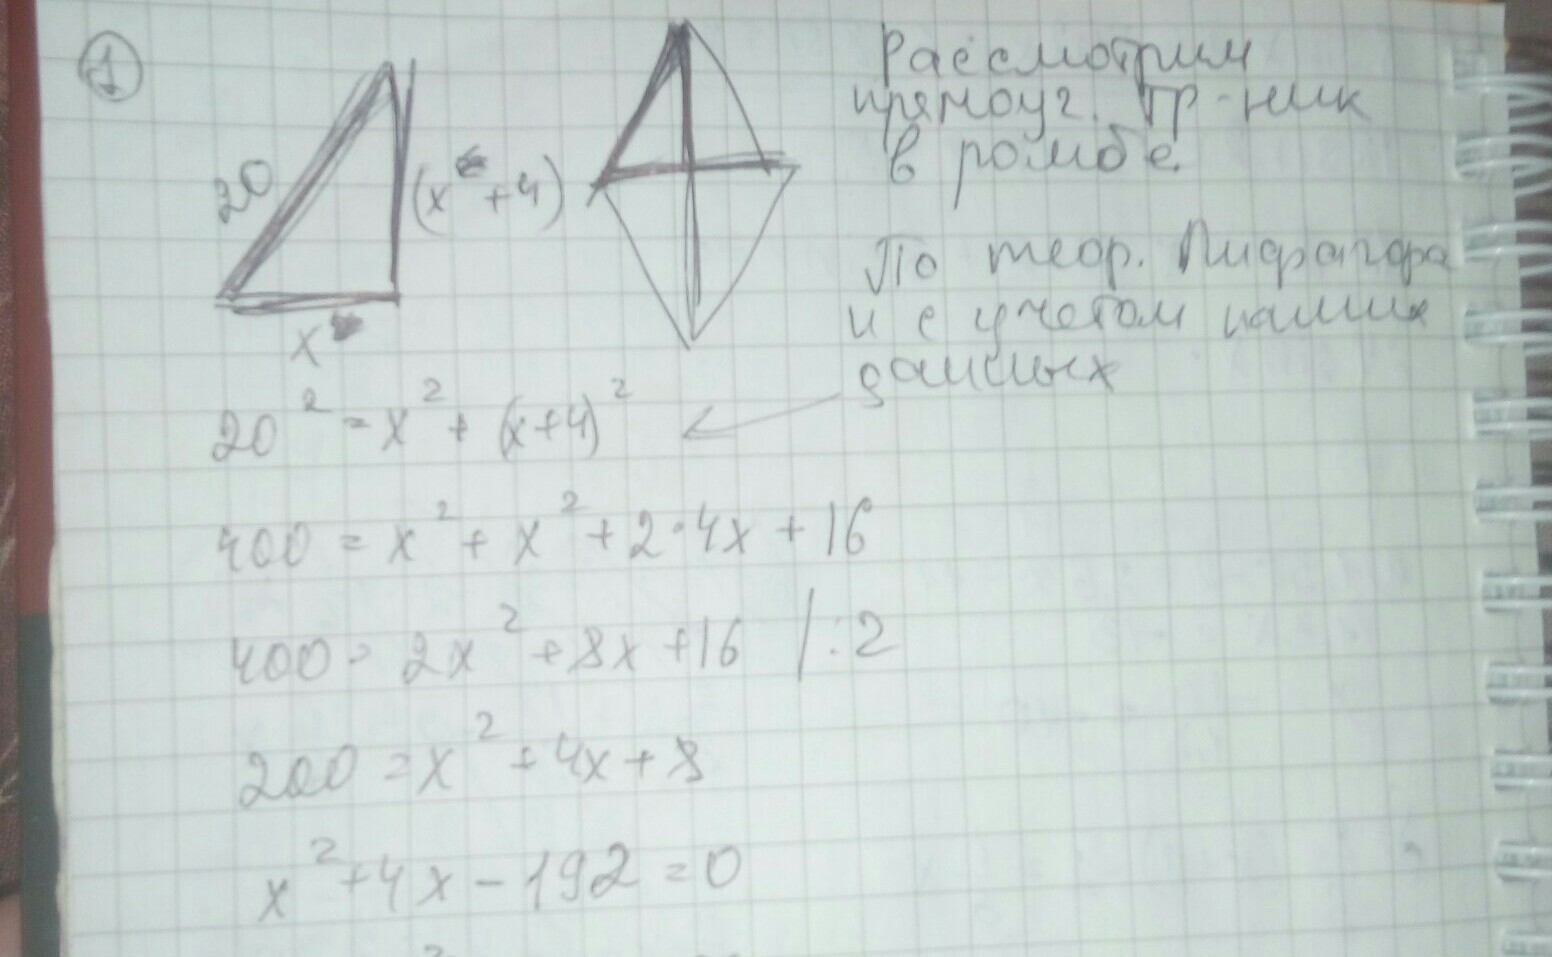 1
Рассмотрим
прямоуг. тр-ник
в ромбе.
20
(x+4)
x
По теор. Пифагора
и с учетом наших
данных
20² = x² + (x+4)²
400 = x² + x² + 2·4x + 16
400 = 2x² + 8x + 16 | :2
200 = x² + 4x + 8
x² + 4x - 192 = 0